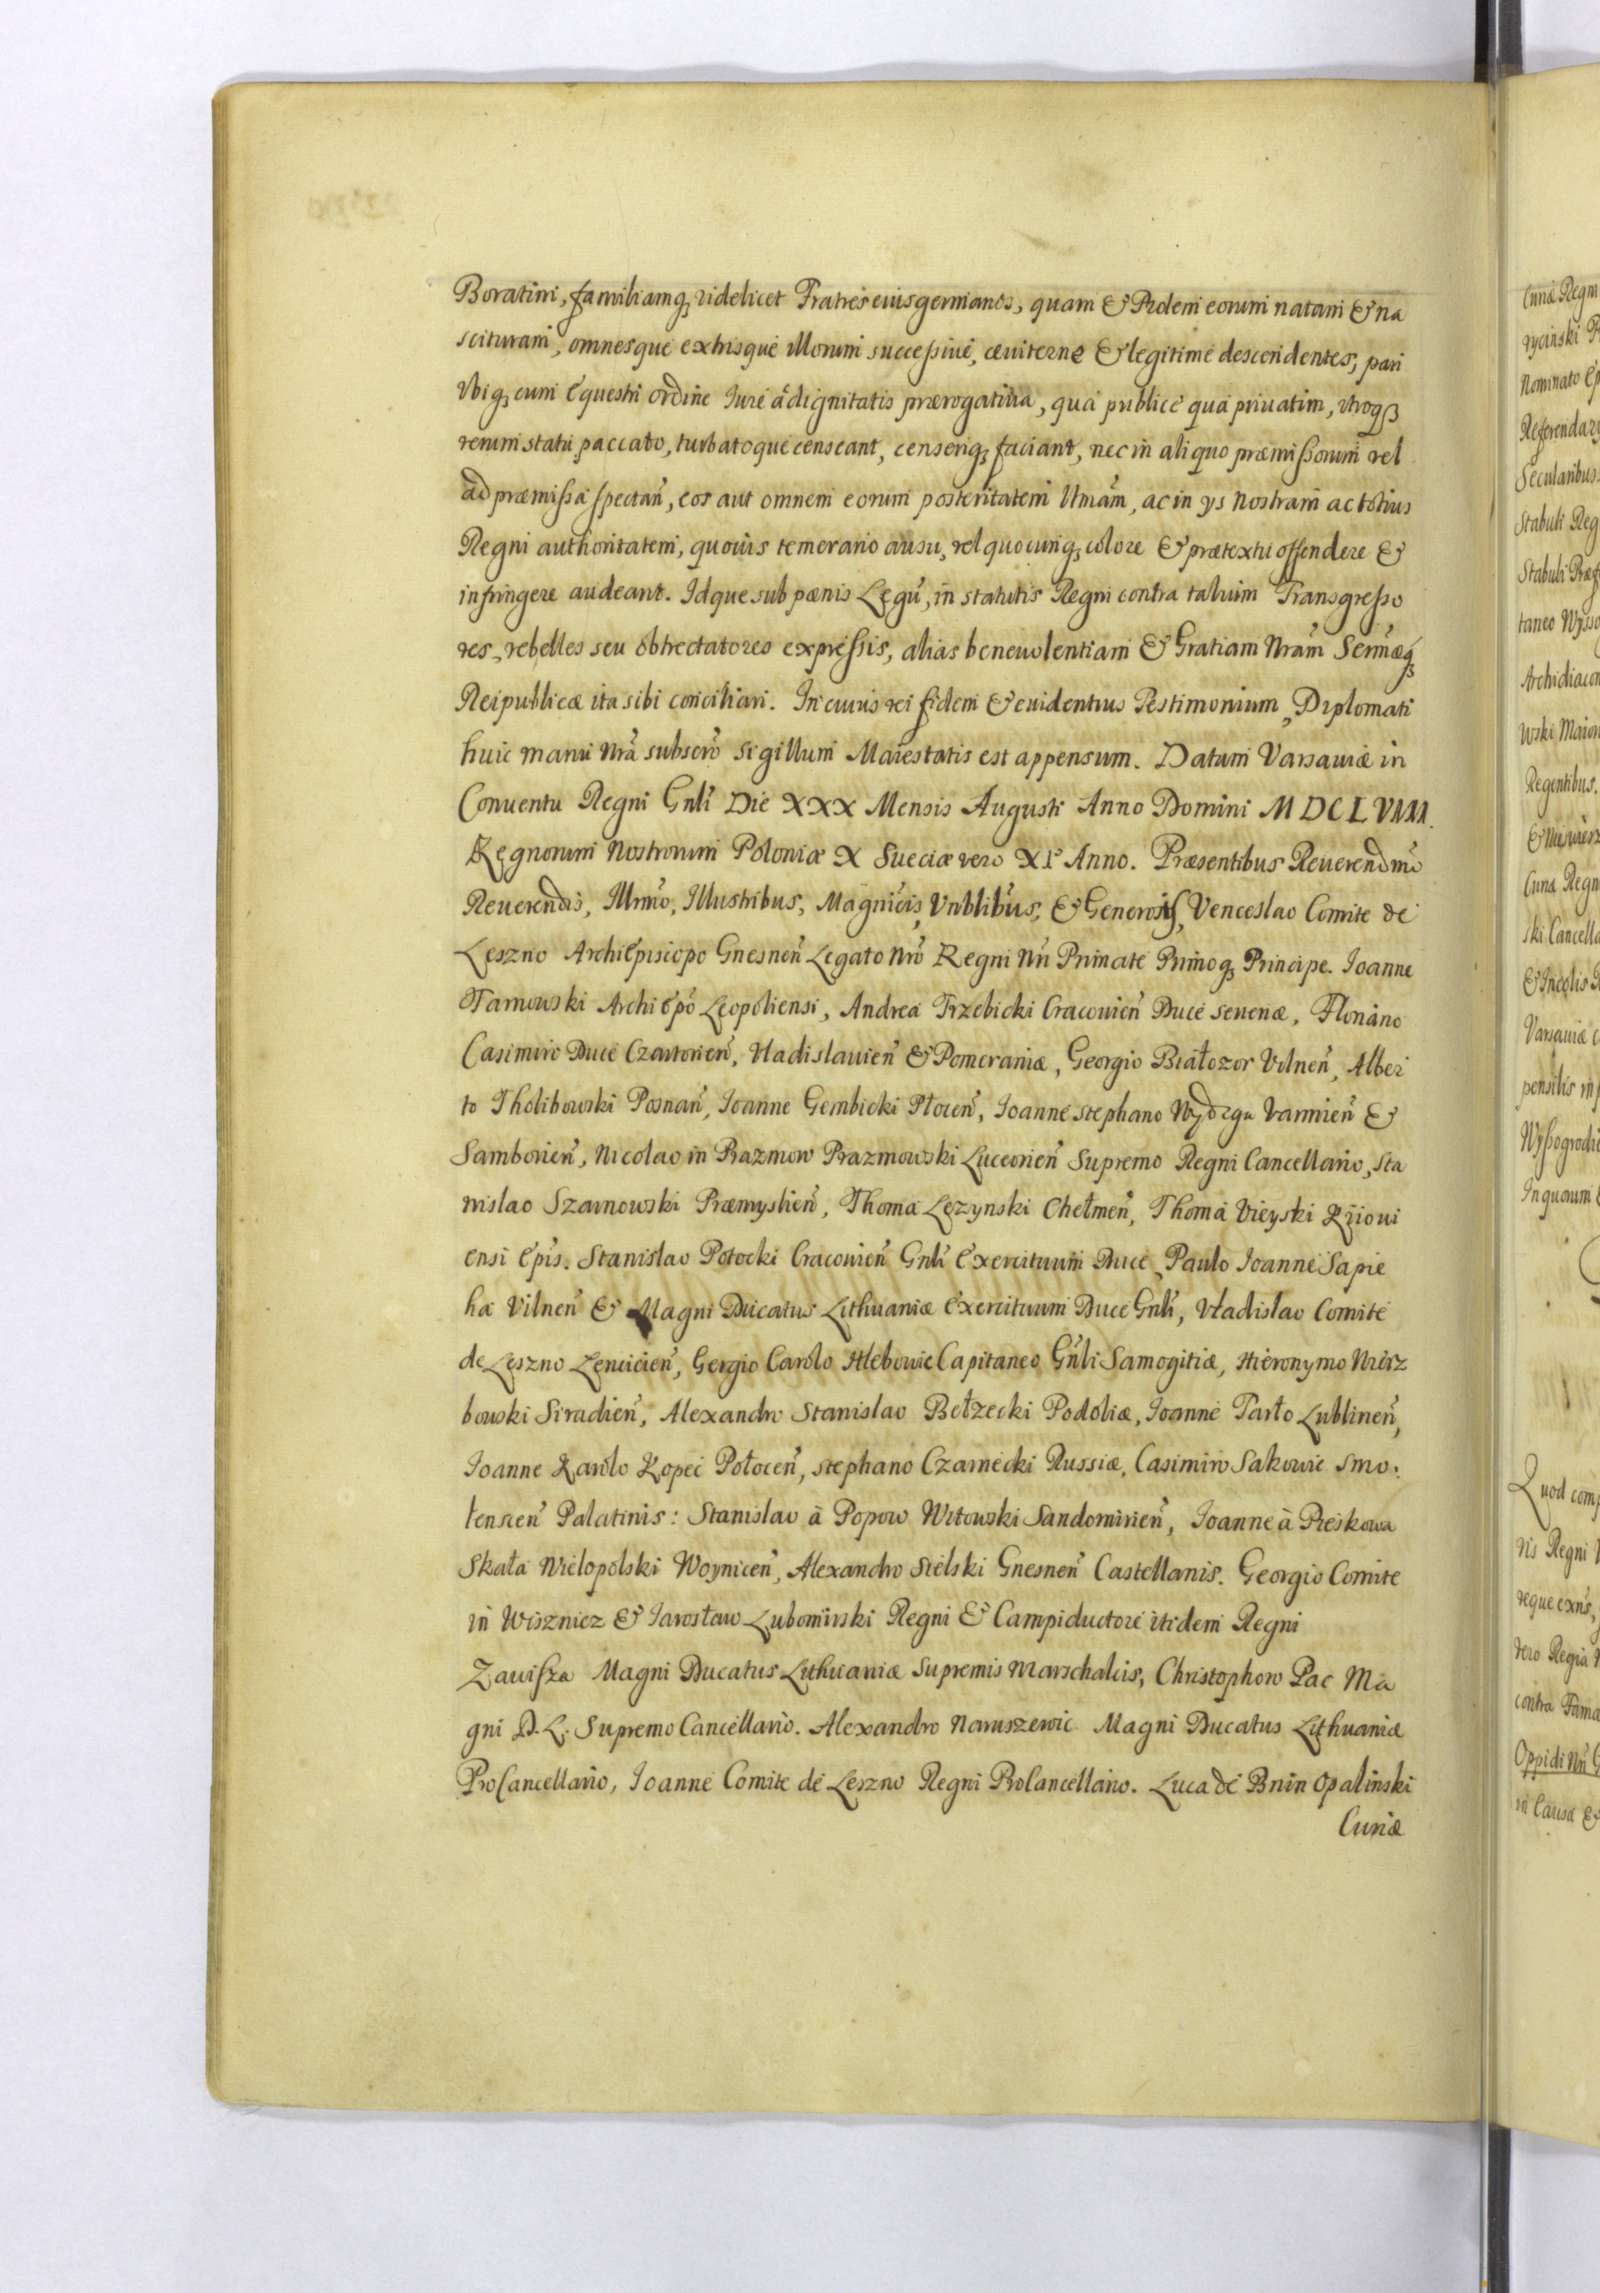 Boratini, familiamq; videlicet Fratres eius germanos, quam & Prolem eorum natam & na
scituram, omnesque extrisque illorum successive, æviterne & legitime descendentes, pari
Vbiq; cum Equestri ordine Iure ac dignitatis prærogativa, qua publicè qua privatim, vtroq;
rerum statu paccato, turbatoque censeant, censeriq; faciant, nec in aliquo præmissorum vel
ad præmissa spectan̄, eos aut omnem eorum posteritatem Ulmam, ac in ys Nostram ac totius
Regni authoritatem, quovis temerario ausu, vel quocunq; colore & prætextu offendere &
infringere audeant. Idque sub pœnis Legũ, in statutis Regni contra talium Transgresso
res, rebelles seu obtrectatores expressis, alias benevolentiam & Gratiam Nrãm Sermæq;
Reipublicæ ita sibi conciliari. In cuius rei fidem & euidentius Testimonium, Diplomati
huic manu Nrã subscrõ sigillum Maiestatis est appensum. Datum Varsauiæ in
Conuentu Regni Gnli Die XXX Mensis Augusti Anno Domini MDCLVIII.
Regnorum Nostrorum Poloniæ X Sueciæ vero XI Anno. Præsentibus Reuerendmo
Reuerendis, Illrmo, Illustribus, Magnicis, Vnblibus, & Generosis, Venceslao Comite de
Leszno ArchiEpiscopo Gnesnen̄ Legato Nrõ Regni Nri Primate Primoq; Principe. Ioanne
Tarnowski Archi Epõ Leopoliensi, Andrea Trzebicki Cracouien̄ Duce Seueriæ, Floriano
Casimiro Duce Czartorien̄, Vladislauien̄ & Pomeraniæ, Georgio Białozor Vilnen̄, Alber
to Tholibowski Posnan̄, Ioanne Gembicki Płocen̄, Ioanne Stephano Wydzga Varmien̄ &
Samborien̄, Nicolao in Prazmow Prazmowski Luceorien̄ Supremo Regni Cancellario, Sta
nislao Szarnowski Præmyslien̄, Thoma Lezynski Chełmen̄, Thoma Vieyski Kijoui
ensi Epis. Stanislao Potocki Cracouien̄ Gnli Exercituum Duce, Paulo Ioanne Sapie
ha Vilnen̄ & Magni Ducatus Lithuaniæ Exercituum Duce Gnli, Vładislao Comite
de Leszno Lencicien̄, Gergio Carolo Hlebowic Capitaneo Gnli Samogitiæ, Hieronymo Wierz
bowski Siradien̄, Alexandro Stanislao Bełzecki Podoliæ, Ioanne Tarło Lublinen̄,
Ioanne Karolo Kopeć Połocen̄, Stephano Czarnecki Russiæ, Casimiro Sakowic Smo:
łenscen̄ Palatinis: Stanislao à Popow Witowski Sandomirien̄, Ioanne à Pieskowa
Skała Wielopolski Woynicen̄, Alexandro Sielski Gnesnen̄ Castellanis. Georgio Comite
in Wiszniez & Iarosław Lubomirski Regni & Campiductore itidem Regni
Zawisza Magni Ducatus Lithuaniæ Supremis Marschalcis, Christophoro Pac Ma
gni D. L. Supremo Cancellario. Alexandro Naruszewic Magni Ducatus Lithuaniæ
ProCancellario, Ioanne Comite de Leszno Regni ProCancellario. Luca de Bnin Opalinski
Curiæ